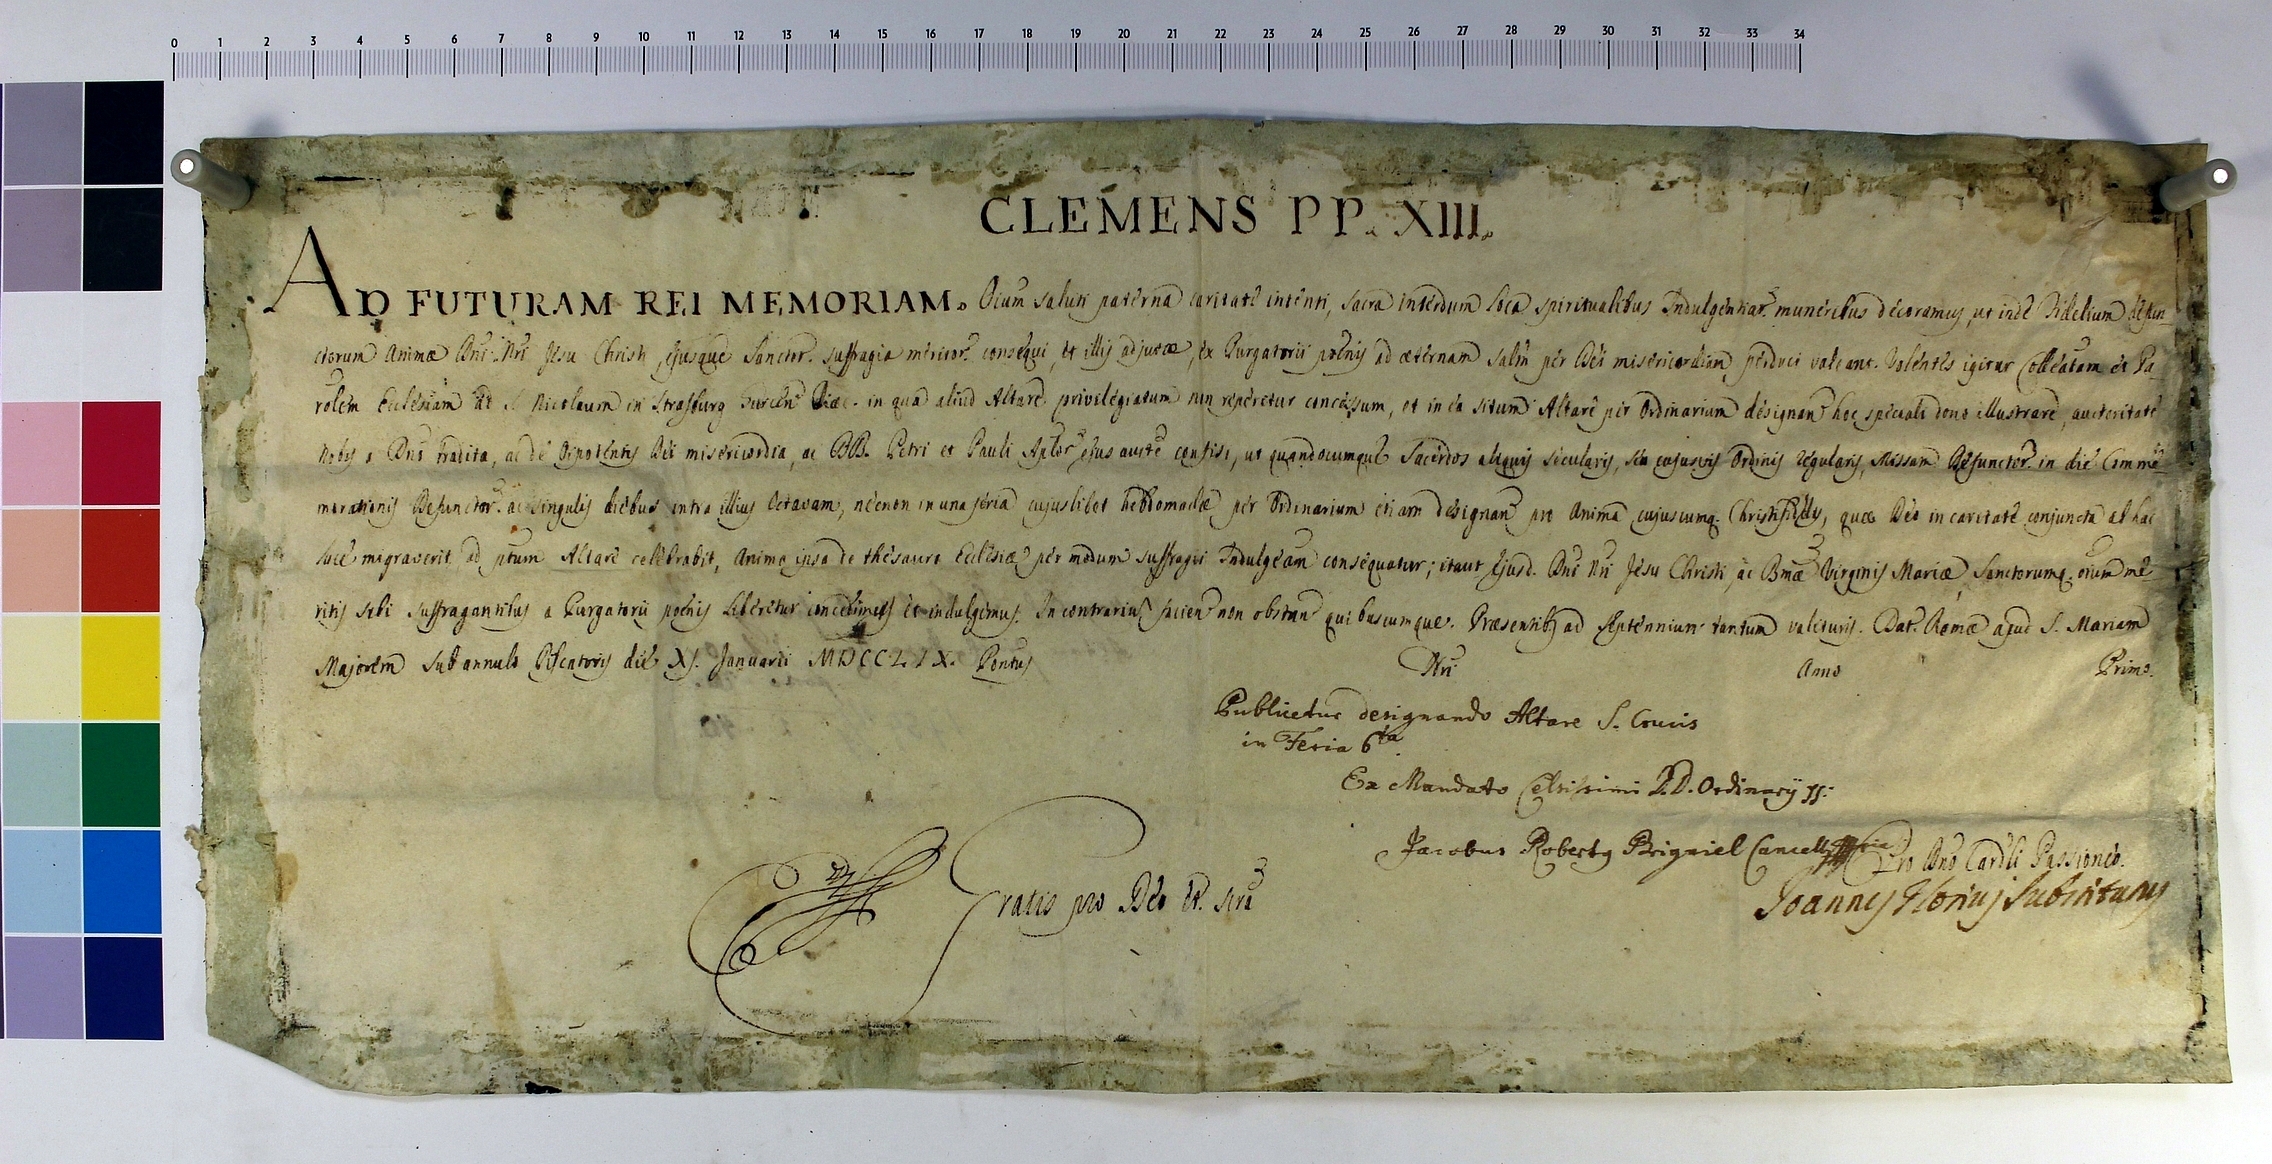 0 1 2 3 4 5 6 7 8 9 10 11 12 13 14 15 16 17 18 19 20 21 22 23 24 25 26 27 28 29 30 31 32 33 34
CLEMENS PP. XIII.
AD FUTURAM REI MEMORIAM. Oium saluti paterna caritate intenti, sacra interdum loca spiritualibus Indulgentiar. muneribus decoramus, ut inde Fidelium defun-
ctorum Animæ Dni Nri Jesu Christi, ejusque Sanctor. suffragia meritor. consequi, et illis adjutæ, ex Purgatorii pœnis ad æternam salm per Dei misericordiam perduci valeant. Volentes igitur Colleatam et Pa-
rolem Ecclesiam ad S. Nicolaum in Strasburg Gurcen Diæc. in qua aliud Altare privilegiatum non reperetur concessum, et in ea situm Altare per Ordinarium designan hoc speciali dono illustrare, auctoritate
nobis a Dno tradita, ac de Oipotentis Dei misericordia, ac BB. Petri et Pauli Aplor ejus aucte confisi, ut quandocumque Sacerdos aliquis secularis, seu cujusvis Ordinis regularis, Missam Defunctor. in die Comme-
morationis Defunctor. ac singulis diebus intra illius Octavam, necnon in una feria cujuslibet hebdomadæ per Ordinarium etiam designan pro Anima cujuscumq. Christifidelis, quæ Deo in caritate conjuncta ab hac
luce migraverit ad ptum Altare celebrabit, Anima ipsa de thesauro Ecclesiæ per modum suffragii Indulgeam consequatur; itaut Ejusd. Dni Nri Jesu Christi, ac Bmæ Virginis Mariæ, Sanctorumq. oium me-
ritis sibi suffragantibus a Purgatorii pœnis liberetur concedimus et indulgemus. In contrarium facien non obstan quibuscumque. Præsentibus ad Septennium tantum valituris. Dat. Romæ apud S. Mariam
Majorem sub annulo Piscatoris die XI. Januarii MDCCLIX. Pontus Nri Anno Primo.
Publicetur designando Altare S. Crucis
in Feria 6ta.
Ex Mandato Celsissimi D. D. Ordinarij
Jacobus Robertg Brigniel
Pro Dno Cardli Passioneo.
Gratis pro Deo et. scra
Joannes Florius Substitutus